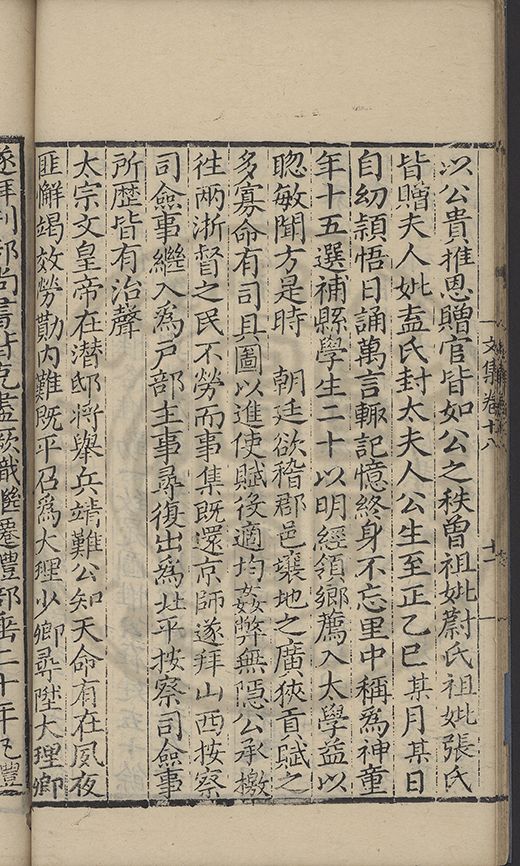 文集卷十八
十一
以公貴推恩贈官皆如公之秩曾祖妣蔚氏祖妣張氏
皆贈夫人妣孟氏封太夫人公生至正乙巳某月某日
自幼頴悟日誦萬言輙記憶終身不忘里中稱爲神童
年十五選補縣學生二十以明經領鄉薦入太學益以
聦敏聞方是時 朝廷欲稽郡邑壤地之廣狹貢賦之
多寡命有司具圖以進使賦役適均姦弊無隱公承檄
徃兩浙督之民不勞而事集旣還京師遂拜山西按察
司僉事繼入爲户部主事尋復出爲北平按察司僉事
所歴皆有治聲
太宗文皇帝在潜邸將舉兵靖難公知天命有在夙夜
匪懈竭效勞勤内難既平召爲大理少卿尋陞大理卿
遂拜刑部尚書皆克盡厥職繼遷禮部
二十年